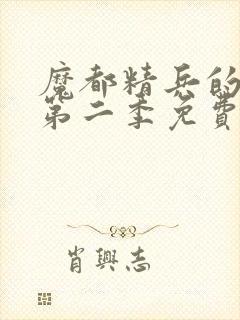 魔都精兵的
第二季免費
肖興志